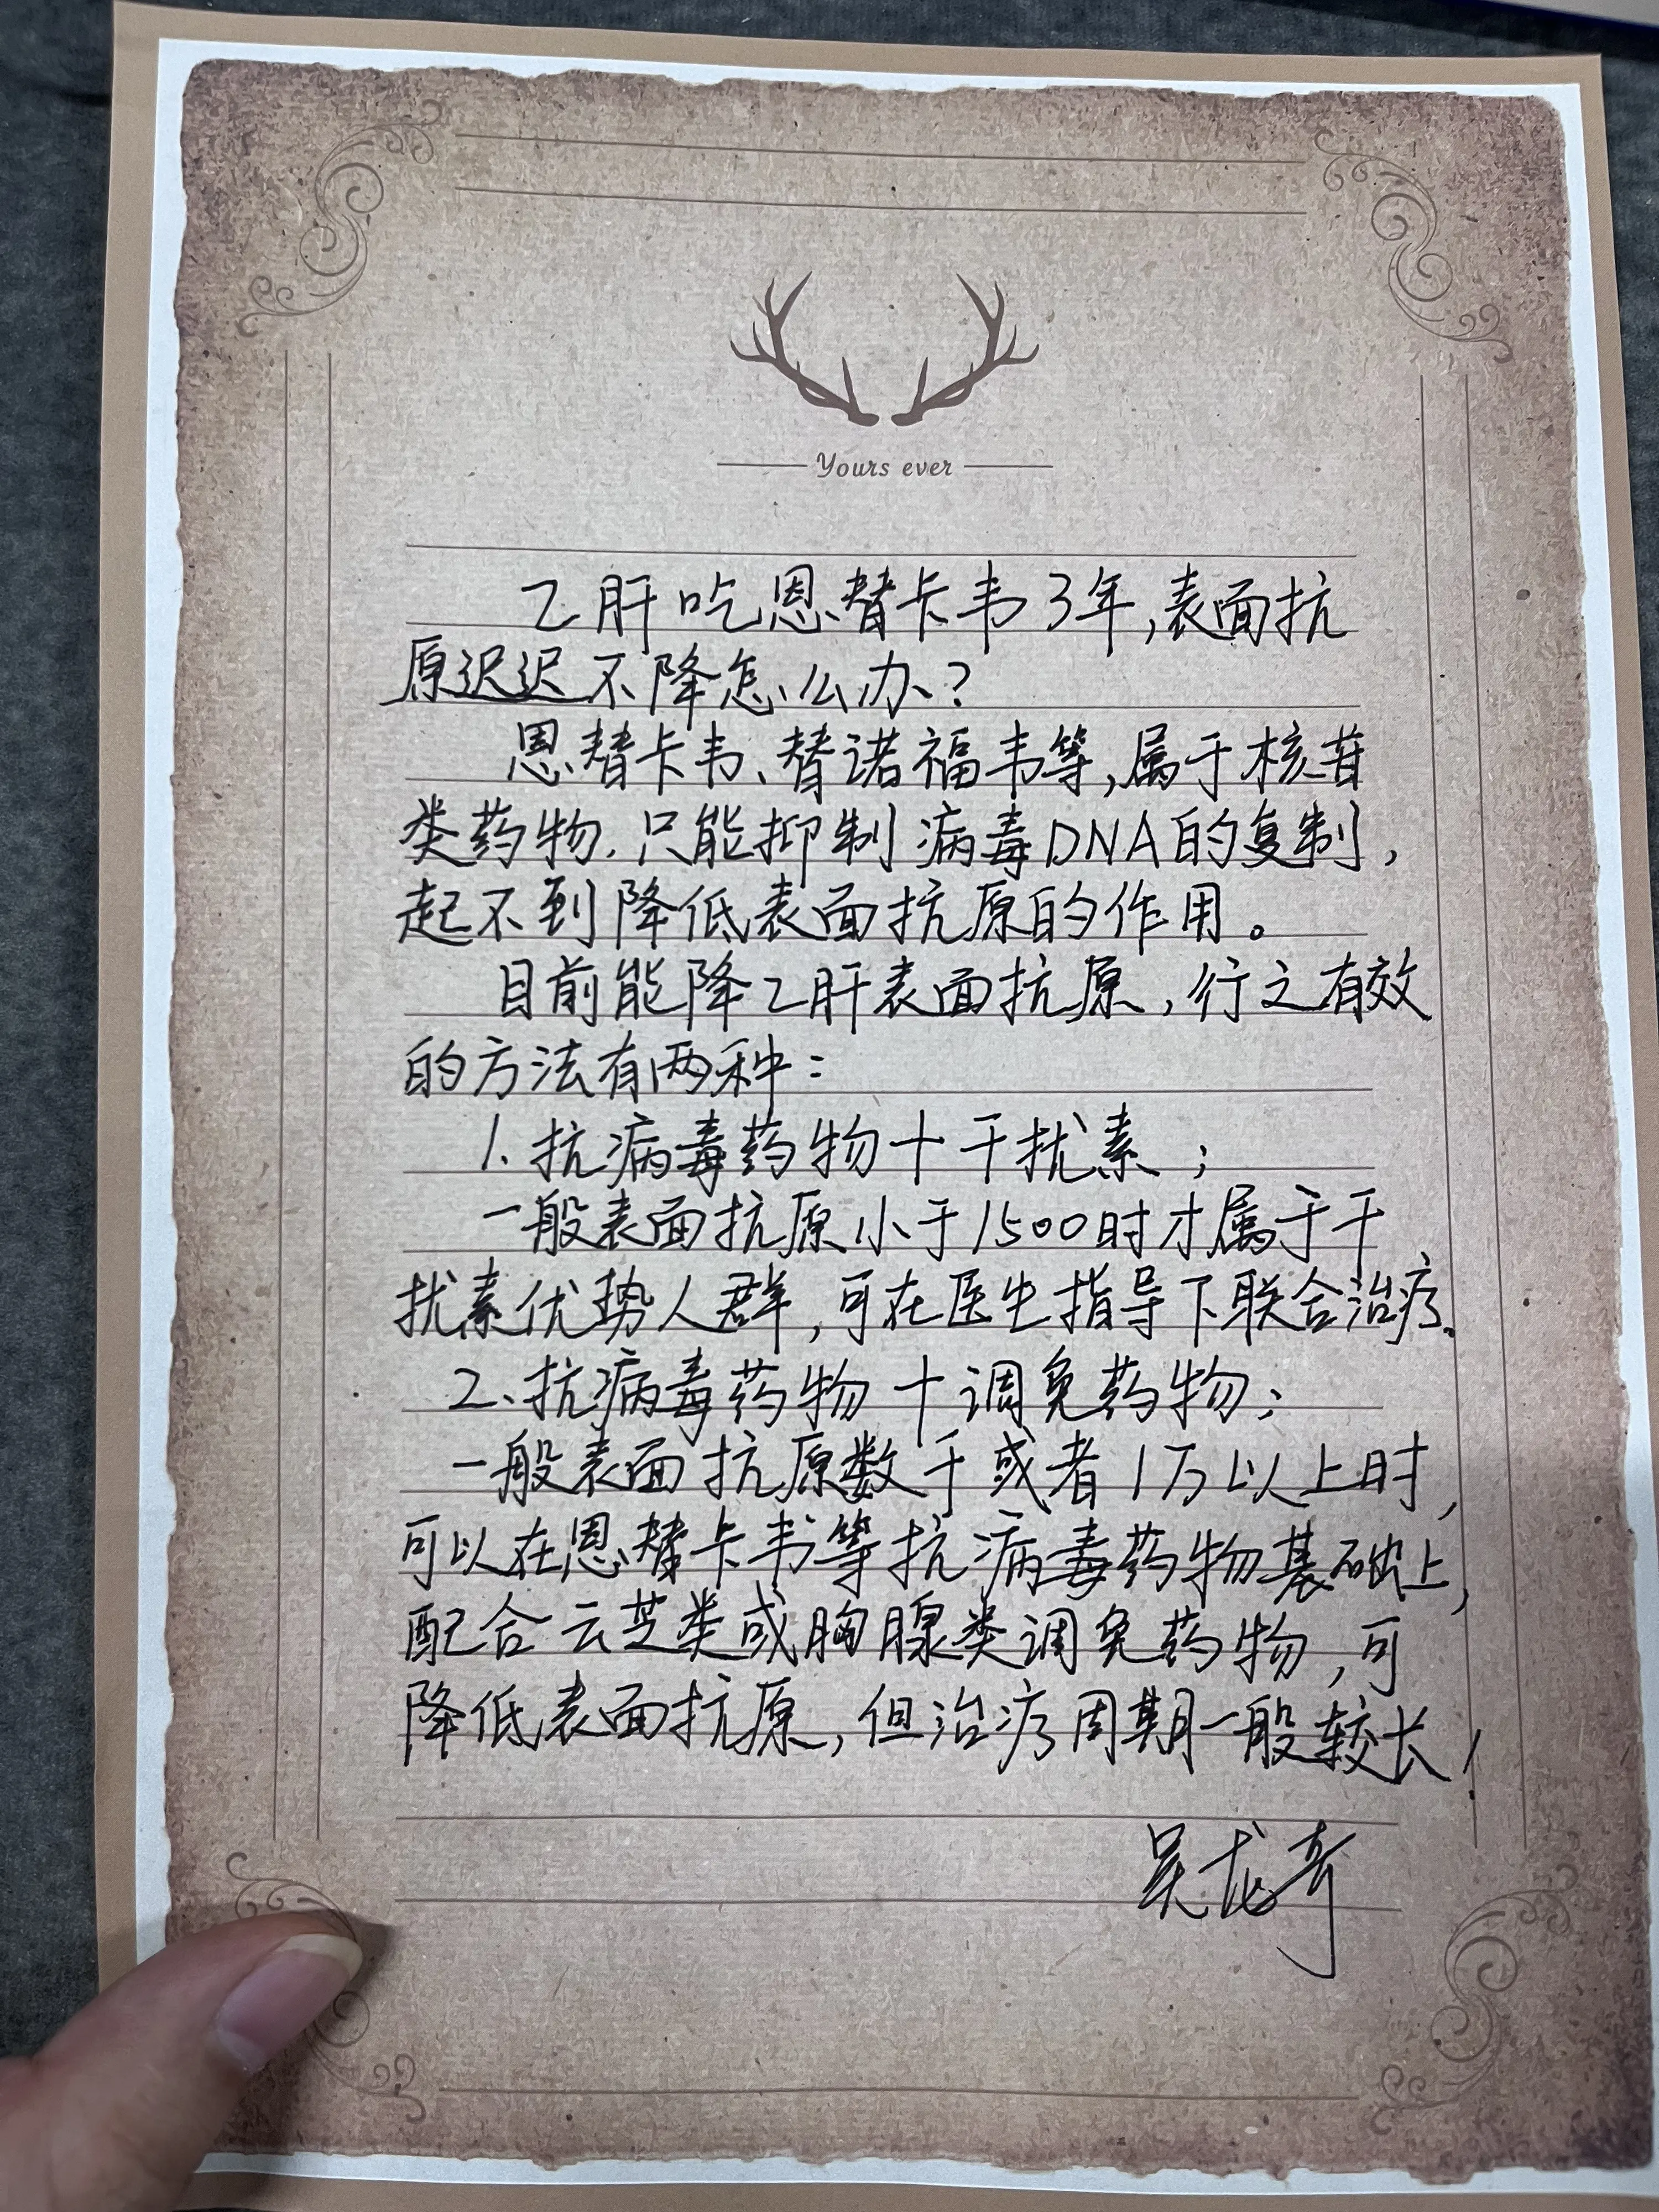 Yours ever
乙肝吃恩替卡韦3年,表面抗
原迟迟不降怎么办?
恩替卡韦、替诺福韦等,属于核苷
类药物.只能抑制病毒DNA的复制,
起不到降低表面抗原的作用。
目前能降乙肝表面抗原,行之有效
的方法有两种:
1、抗病毒药物+干扰素;
一般表面抗原小于1500时才属于干
扰素优势人群,可在医生指导下联合治疗.
2、抗病毒药物+调免药物;
一般表面抗原数千或者1万以上时,
可以在恩替卡韦等抗病毒药物基础上,
配合云芝类或胸腺类调免药物,可
降低表面抗原,但治疗周期一般较长!
吴龙奇